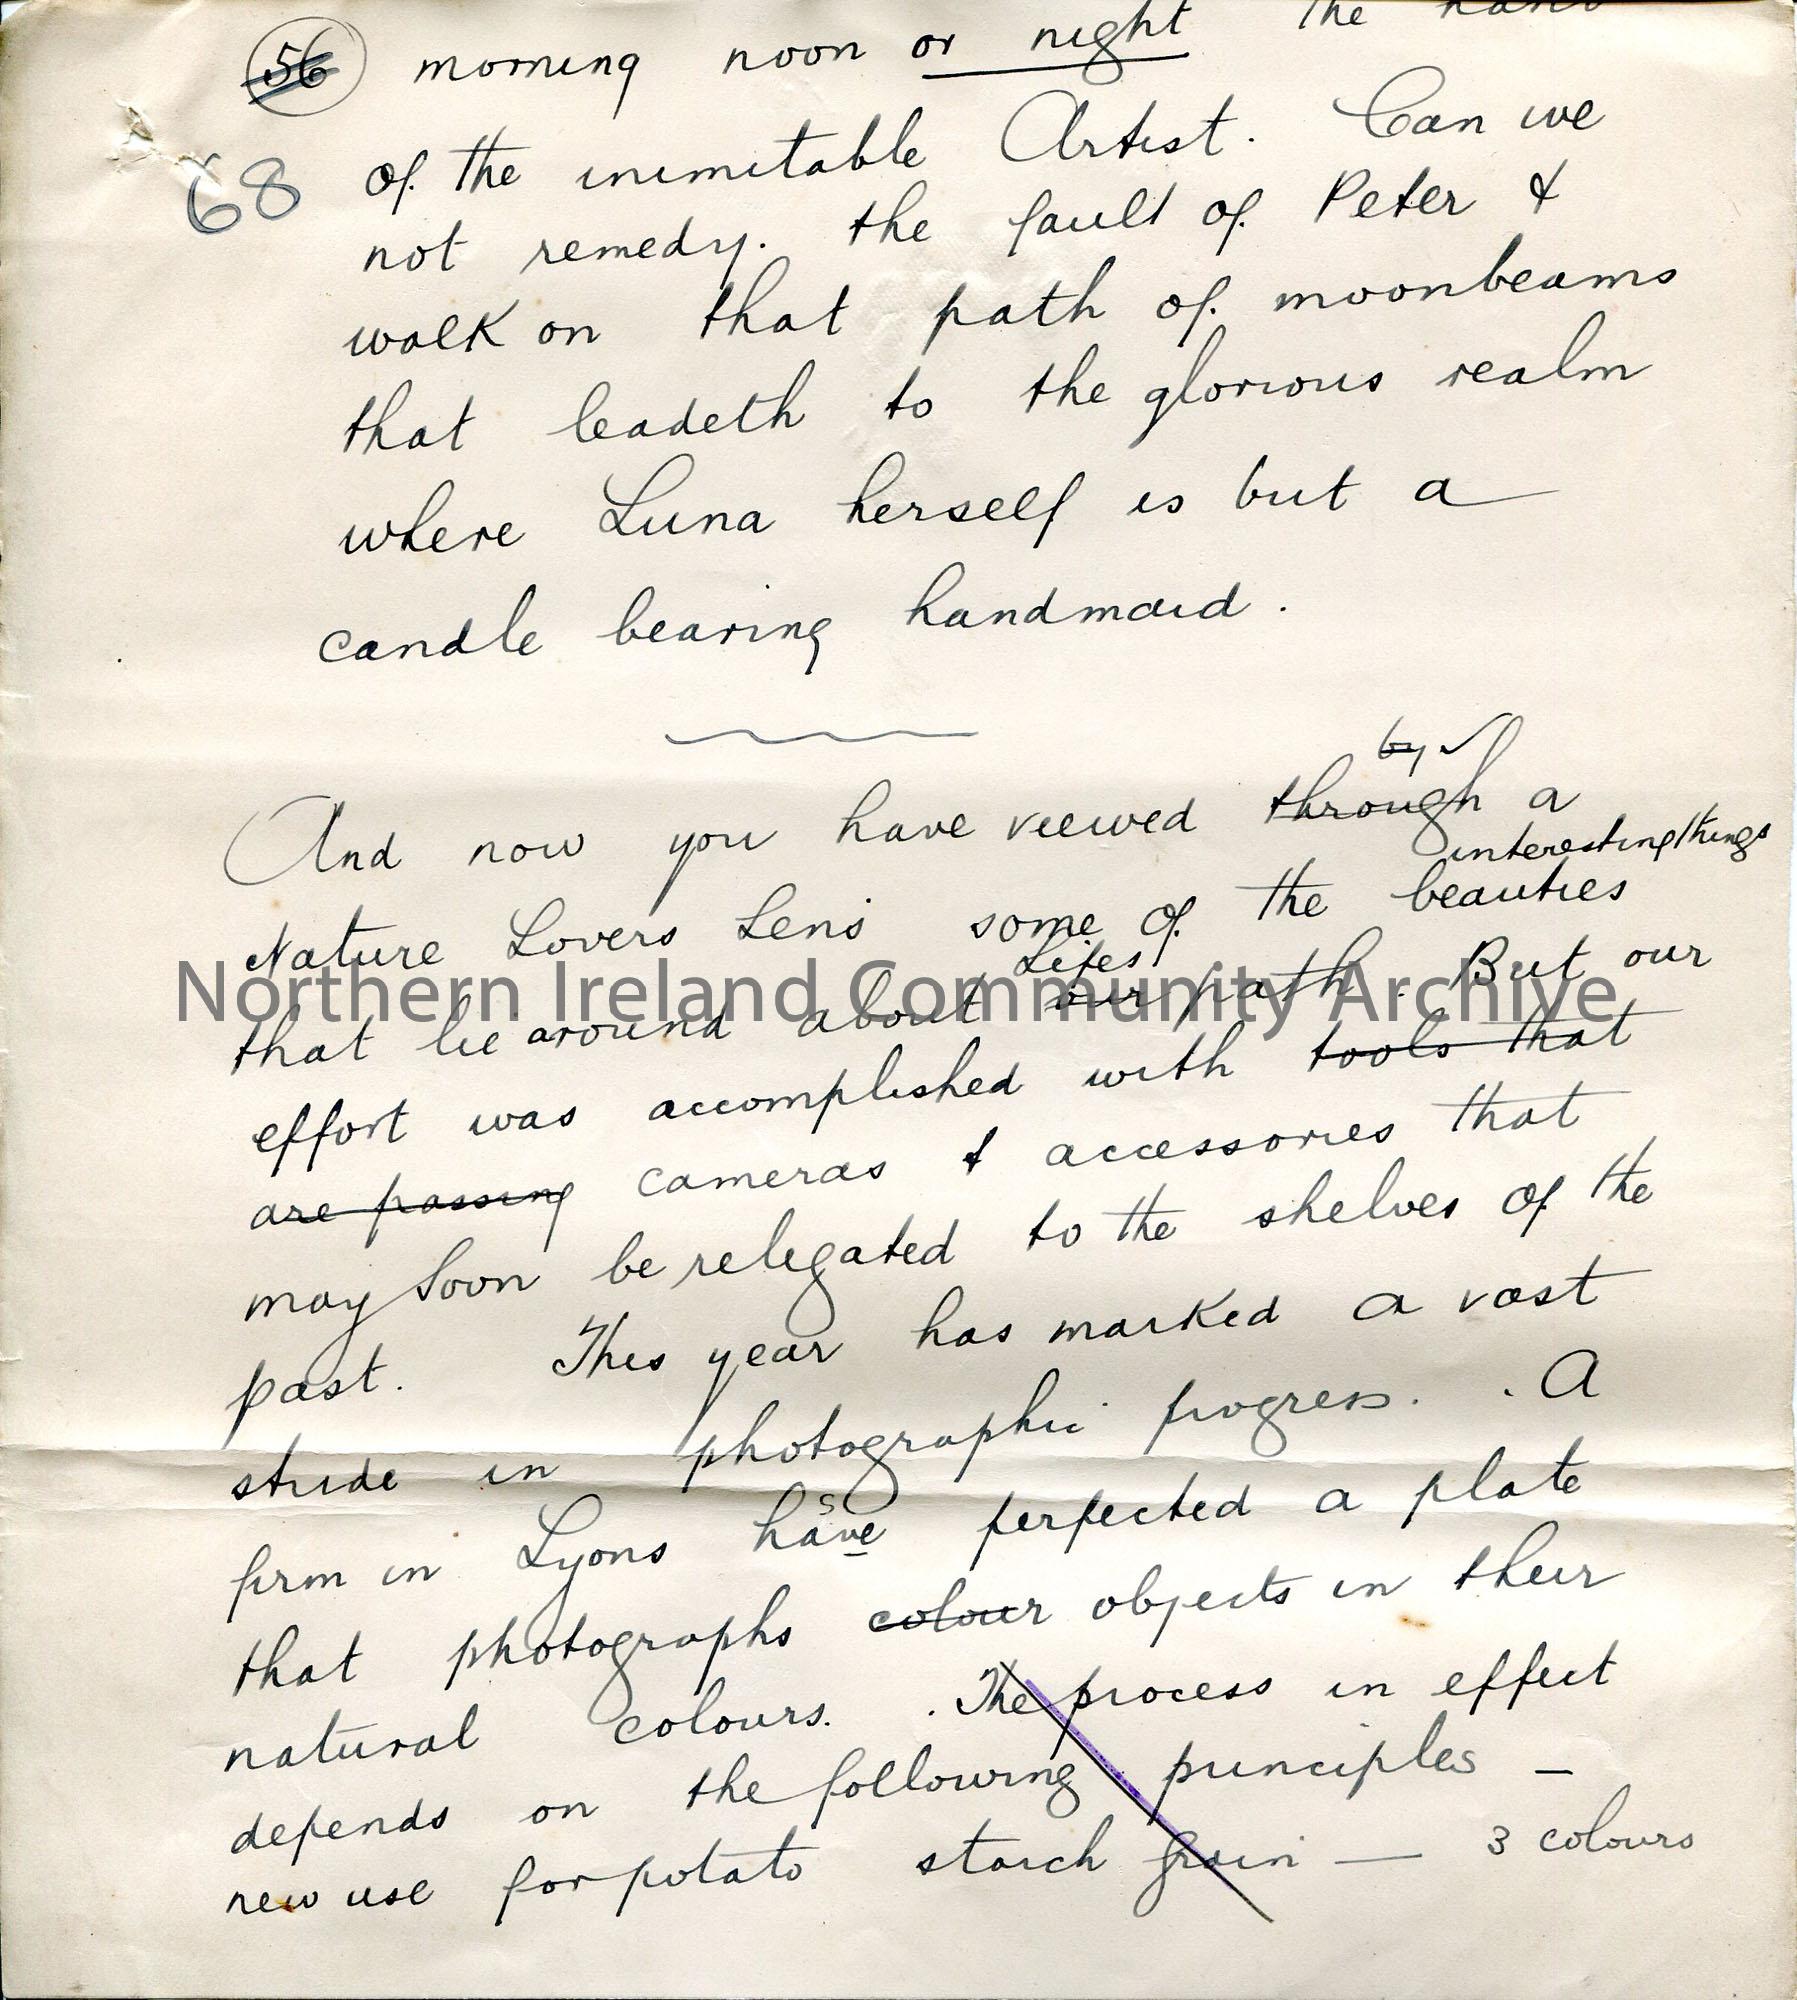 56 morning noon or night the hand
68 of the inimitable Artist. Can we
not remedy the fault of Peter &
walk on that path of moonbeams
that leadeth to the glorious realm
where Luna herself is but a
candle bearing handmaid.
by
And now you have viewed through a
interesting things
Nature Lovers Lens some of the beauties
Lifes
that lie around about our path. But our
Northern Ireland Community Archive
effort was accomplished with tools that
are passing cameras & accessories that
may soon be relegated to the shelves of the
past. This year has marked a vast
stride in photographic progress. A
s
firm in Lyons have perfected a plate
that photographs colour objects in their
natural colours. The process in effect
depends on the following principles –
new use for potato starch grain — 3 colours